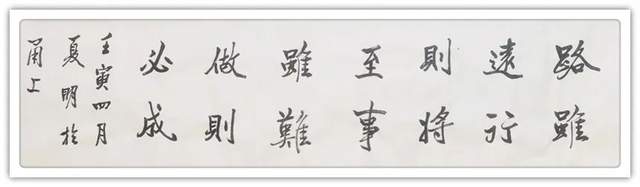 路雖
遠行
則將
至事
雖難
做則
必成
壬寅四月
夏明於
甬上